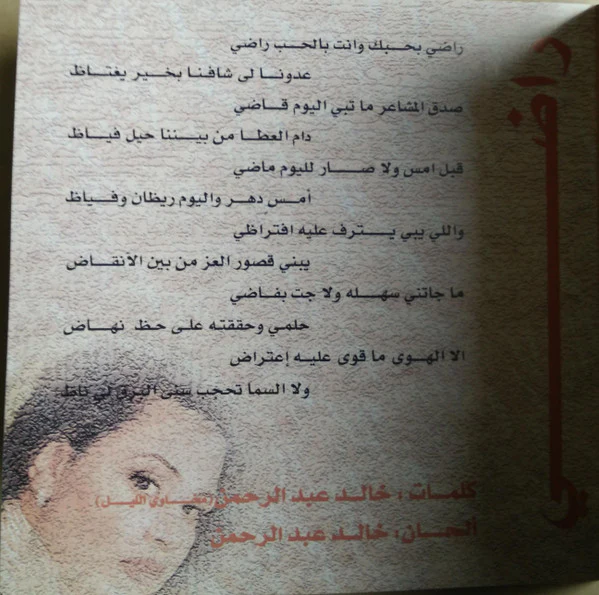 راضي
راضي بحبك وانت بالحب راضي
عدونا لى شافنا بخير يغتاظ
صدق المشاعر ما تبي اليوم قاضي
دام العطا من بيننا حيل فياظ
قبل امس ولا صار لليوم ماضي
أمس دهر واليوم ريظان وفياظ
واللي يبي يترف عليه افتراظي
يبني قصور العز من بين الأنقاض
ما جاتني سهله ولا جت بفاضي
حلمي وحققته على حظ نهاض
الا الهوى ما قوى عليه إعتراض
ولا السما تحجب سنى البرق لي ناظ
كلمات : خالد عبد الرحمن (مخاوي الليل)
ألحان : خالد عبد الرحمن